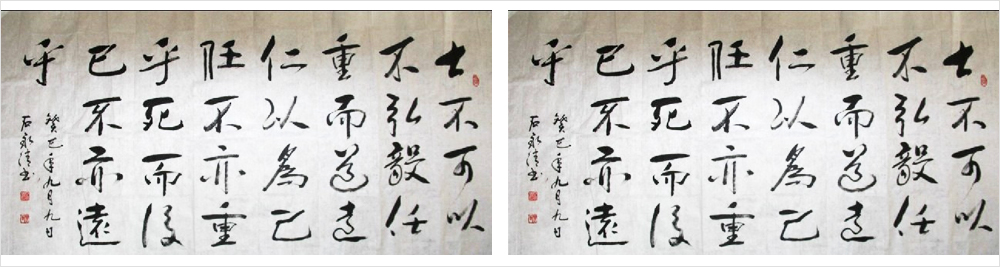 士不可以
不弘毅任
重而道远
仁以為己
任不亦重
乎死而後
已不亦遠
乎
癸巳年九月九日
石永
士不可以
不弘毅任
重而道远
仁以為己
任不亦重
乎死而後
已不亦遠
乎
癸巳年九月九日
石永